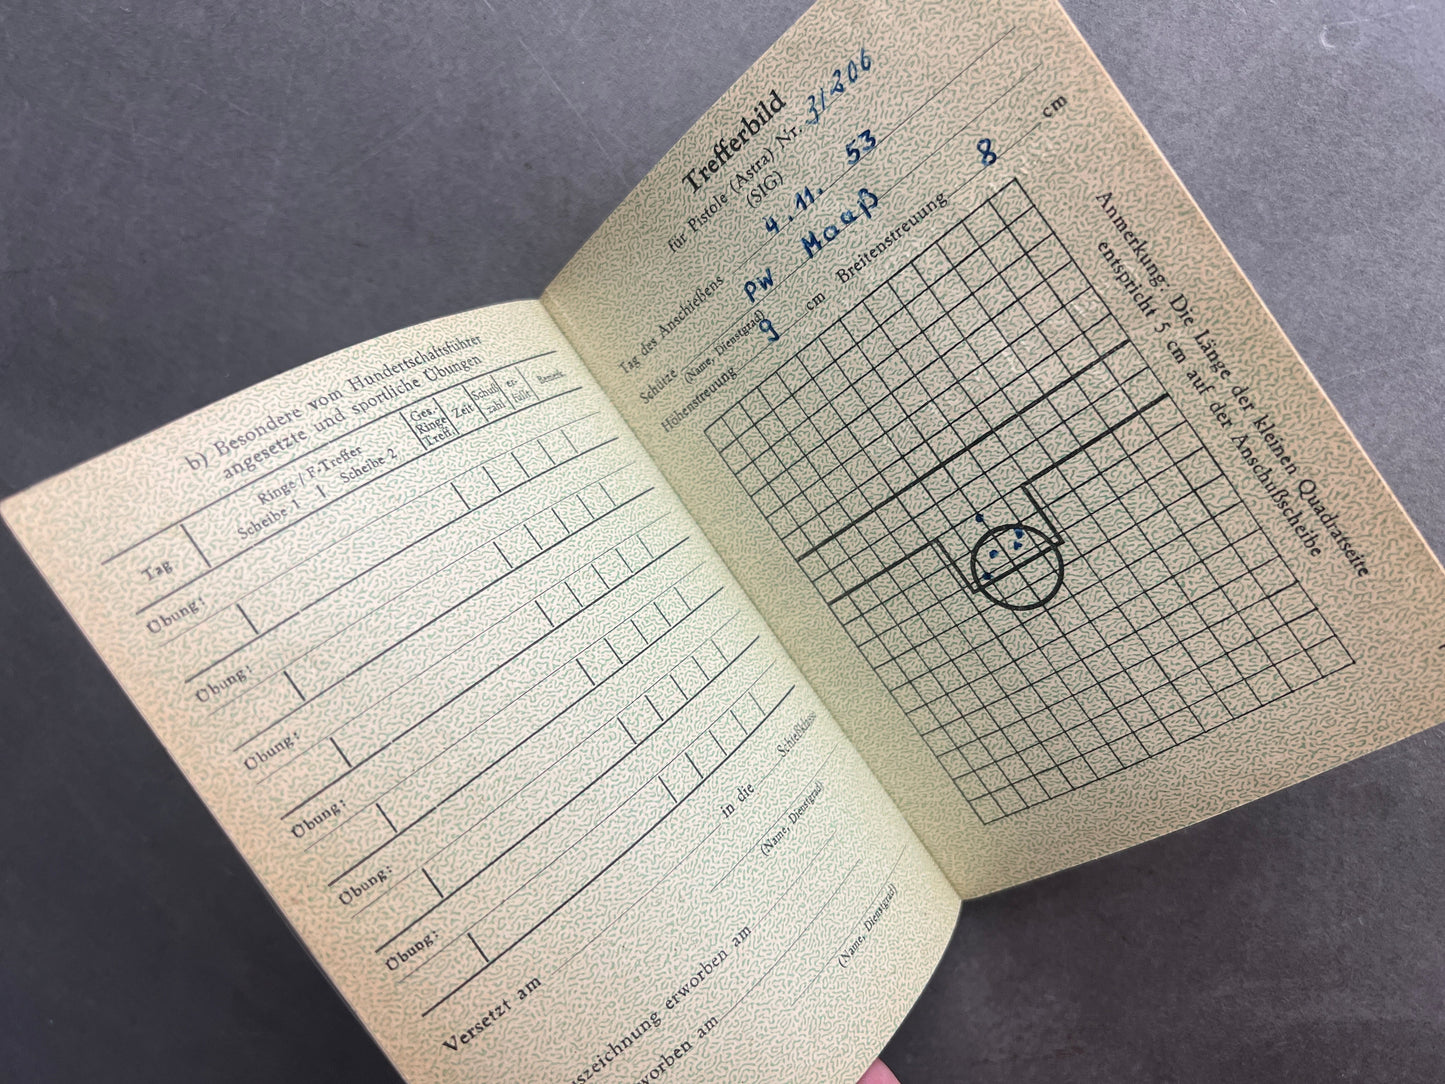 b) Besondere vom Hundertschaftsführer
angesetzte und sportliche Übungen
Tag
Ringe / F-Treffer
Scheibe 1
Scheibe 2
Ges.-
Ringe
Treff.
Zeit
Schuß
zahl
er-
füllt
Bemerk.
Übung:
Übung:
Übung:
Übung:
Übung:
Übung:
Versetzt am
in die
Schießklasse
(Name, Dienstgrad)
szeichnung erworben am
worben am
(Name, Dienstgrad)
Trefferbild
für Pistole (Astra) Nr. 31206
(SIG)
Tag des Anschießens 4.11. 53
Schütze PW Maaß
(Name, Dienstgrad)
Höhenstreuung 9 cm Breitenstreuung 8 cm
Anmerkung: Die Länge der kleinen Quadratseite
entspricht 5 cm auf der Anschußscheibe